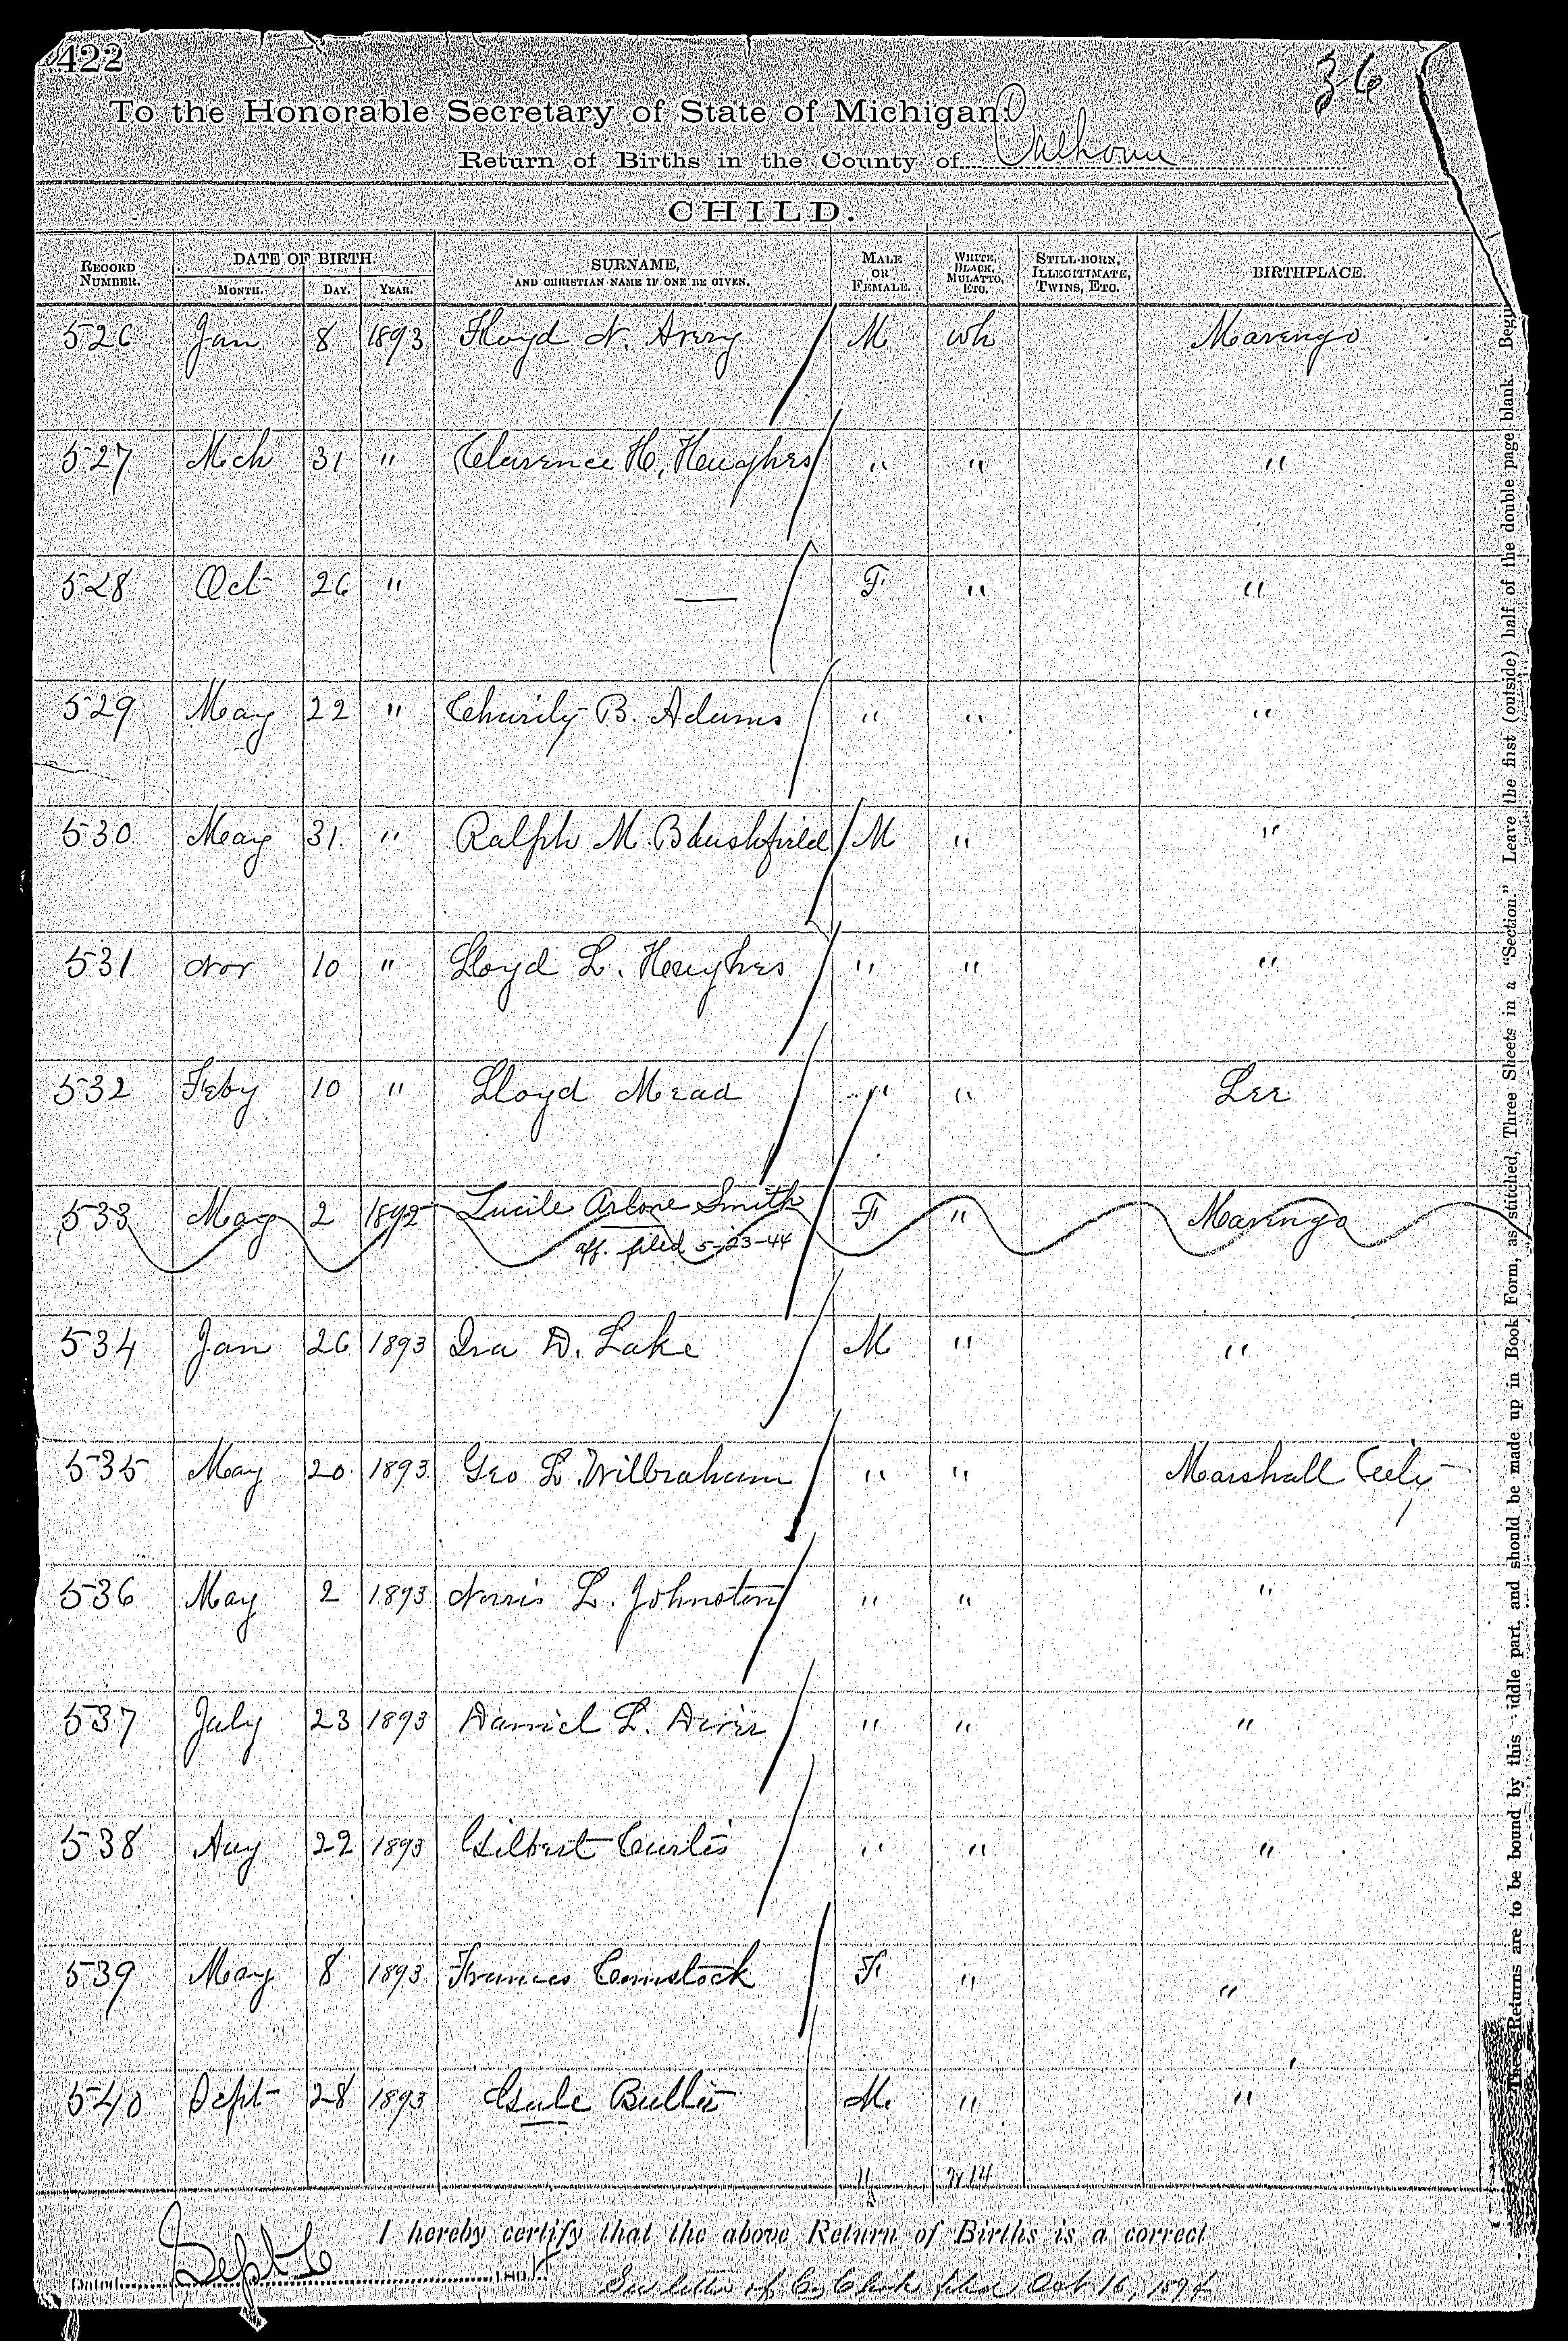 422
36
To the Honorable Secretary of State of Michigan:
Return of Births in the County of Calhoun
CHILD.
RECORD NUMBER. DATE OF BIRTH. MONTH. DAY. YEAR. SURNAME, AND CHRISTIAN NAME IF ONE BE GIVEN. MALE OR FEMALE. WHITE, BLACK, MULATTO, ETC. STILL-BORN, ILLEGITIMATE, TWINS, ETC. BIRTHPLACE.
526 Jan 8 1893 Floyd N. Avery M Wh Marengo
527 Mch 31 " Clarence H. Hughes " " "
528 Oct 26 " — F " "
529 May 22 " Charity B. Adams " " "
530 May 31 " Ralph M. Bushfield M " "
531 Nov 10 " Lloyd L. Hughes " " "
532 Feby 10 " Lloyd Mead " " Lee
533 May 2 1892 Lucile Arlone Smith F " Marengo
aff. filed 5-23-44
534 Jan 26 1893 Ira D. Lake M " "
535 May 20 1893 Geo L. Wilbraham " " Marshall City
536 May 2 1893 Norris L. Johnston " " "
537 July 23 1893 Daniel L. Davis " " "
538 Aug 22 1893 Gilbert Curtis " " "
539 May 8 1893 Frances Comstock F " "
540 Sept 28 1893 Gale Bullis M. " "
11 14
I hereby certify that the above Return of Births is a correct
Dated Sept 6 189
See letter of Co Clerk filed Oct 16, 1894
These Returns are to be bound by this middle part, and should be made up in Book Form, as stitched, Three Sheets in a "Section." Leave the first (outside) half of the double page blank. Begin